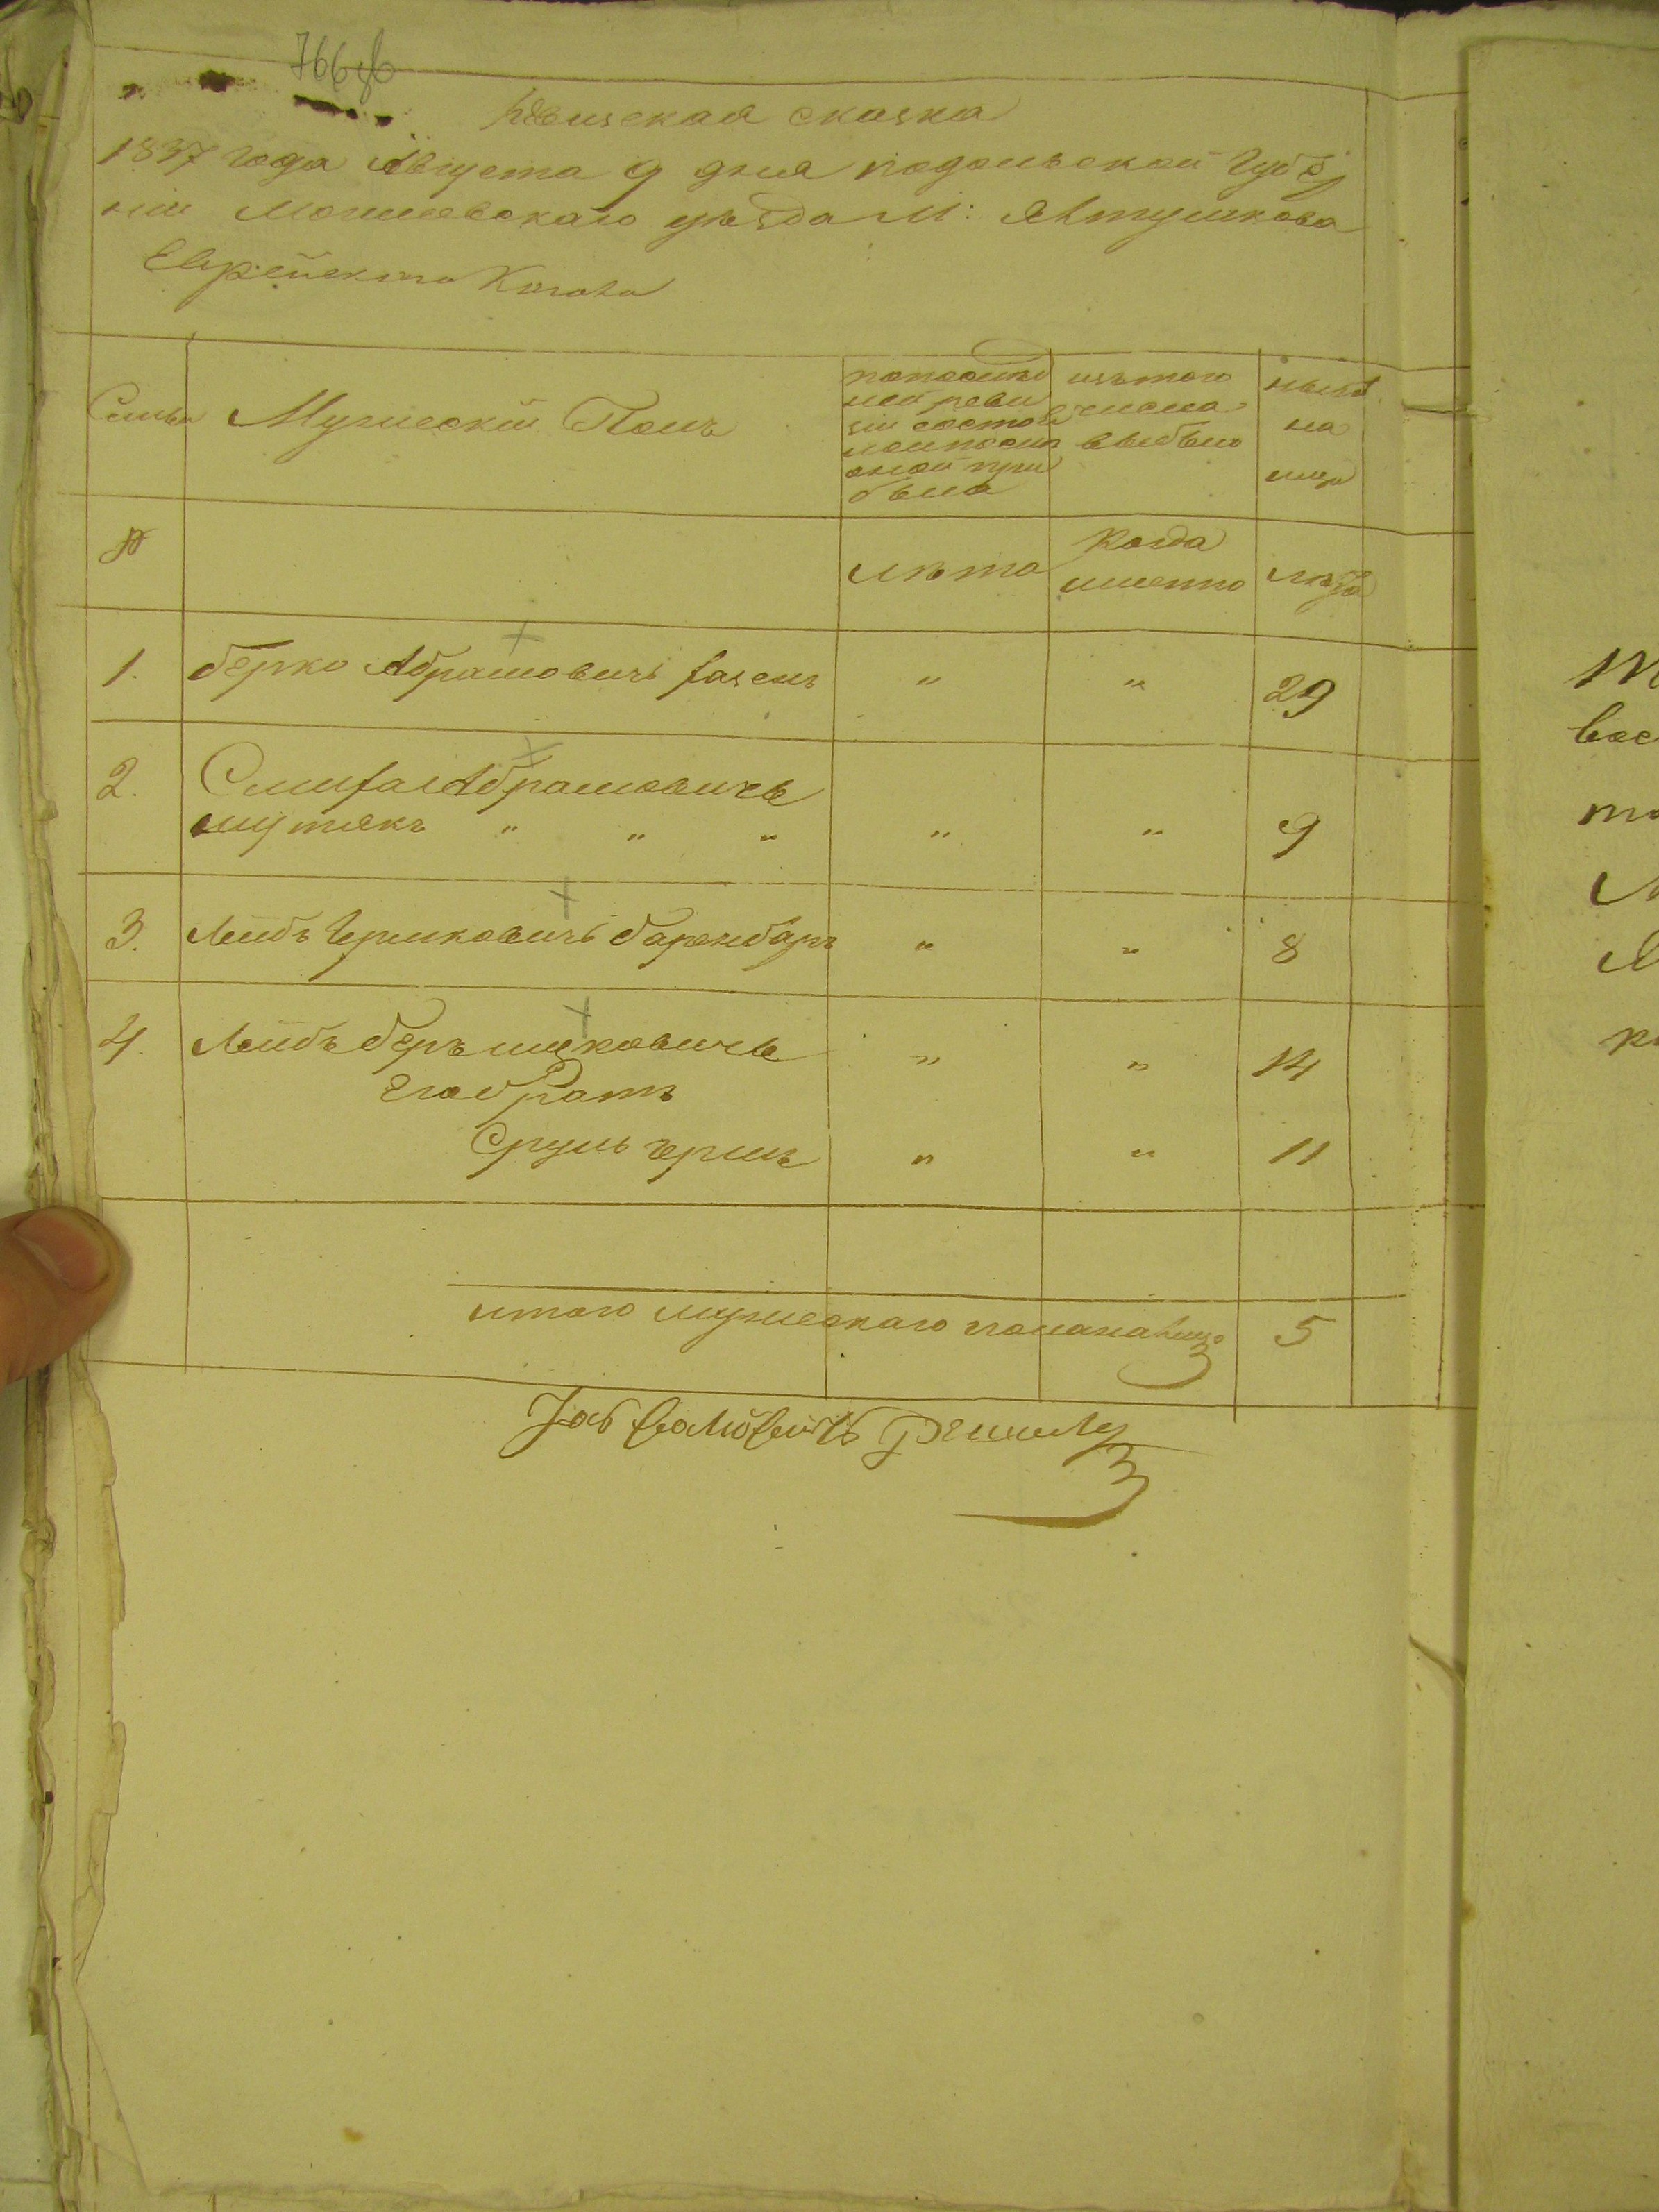 766
Ревизская сказка
1837 года Августа 9 дня подольской Губер
ніи Могилевскаго уезда М: Ялтушкова
Еврейскаго Кагала
Семьи
Мужескій Полъ
по последней
ней реви
зіи состояло
или после
оной при
было
изъ того
числа
выбыло
ныне
на
лицо
№
лета
Когда
именно
лета
1. Берко Абрамовичъ " " 29
2. Абрамовичъ
шутякъ " " " " " 9
3. Лейбъ Гершковичъ баренбаръ " " 8
4. Лейбъ Беръ ицковичъ " " 14
Его братъ
Сруль гершъ " " 11
итого мужескаго пола налицо 5